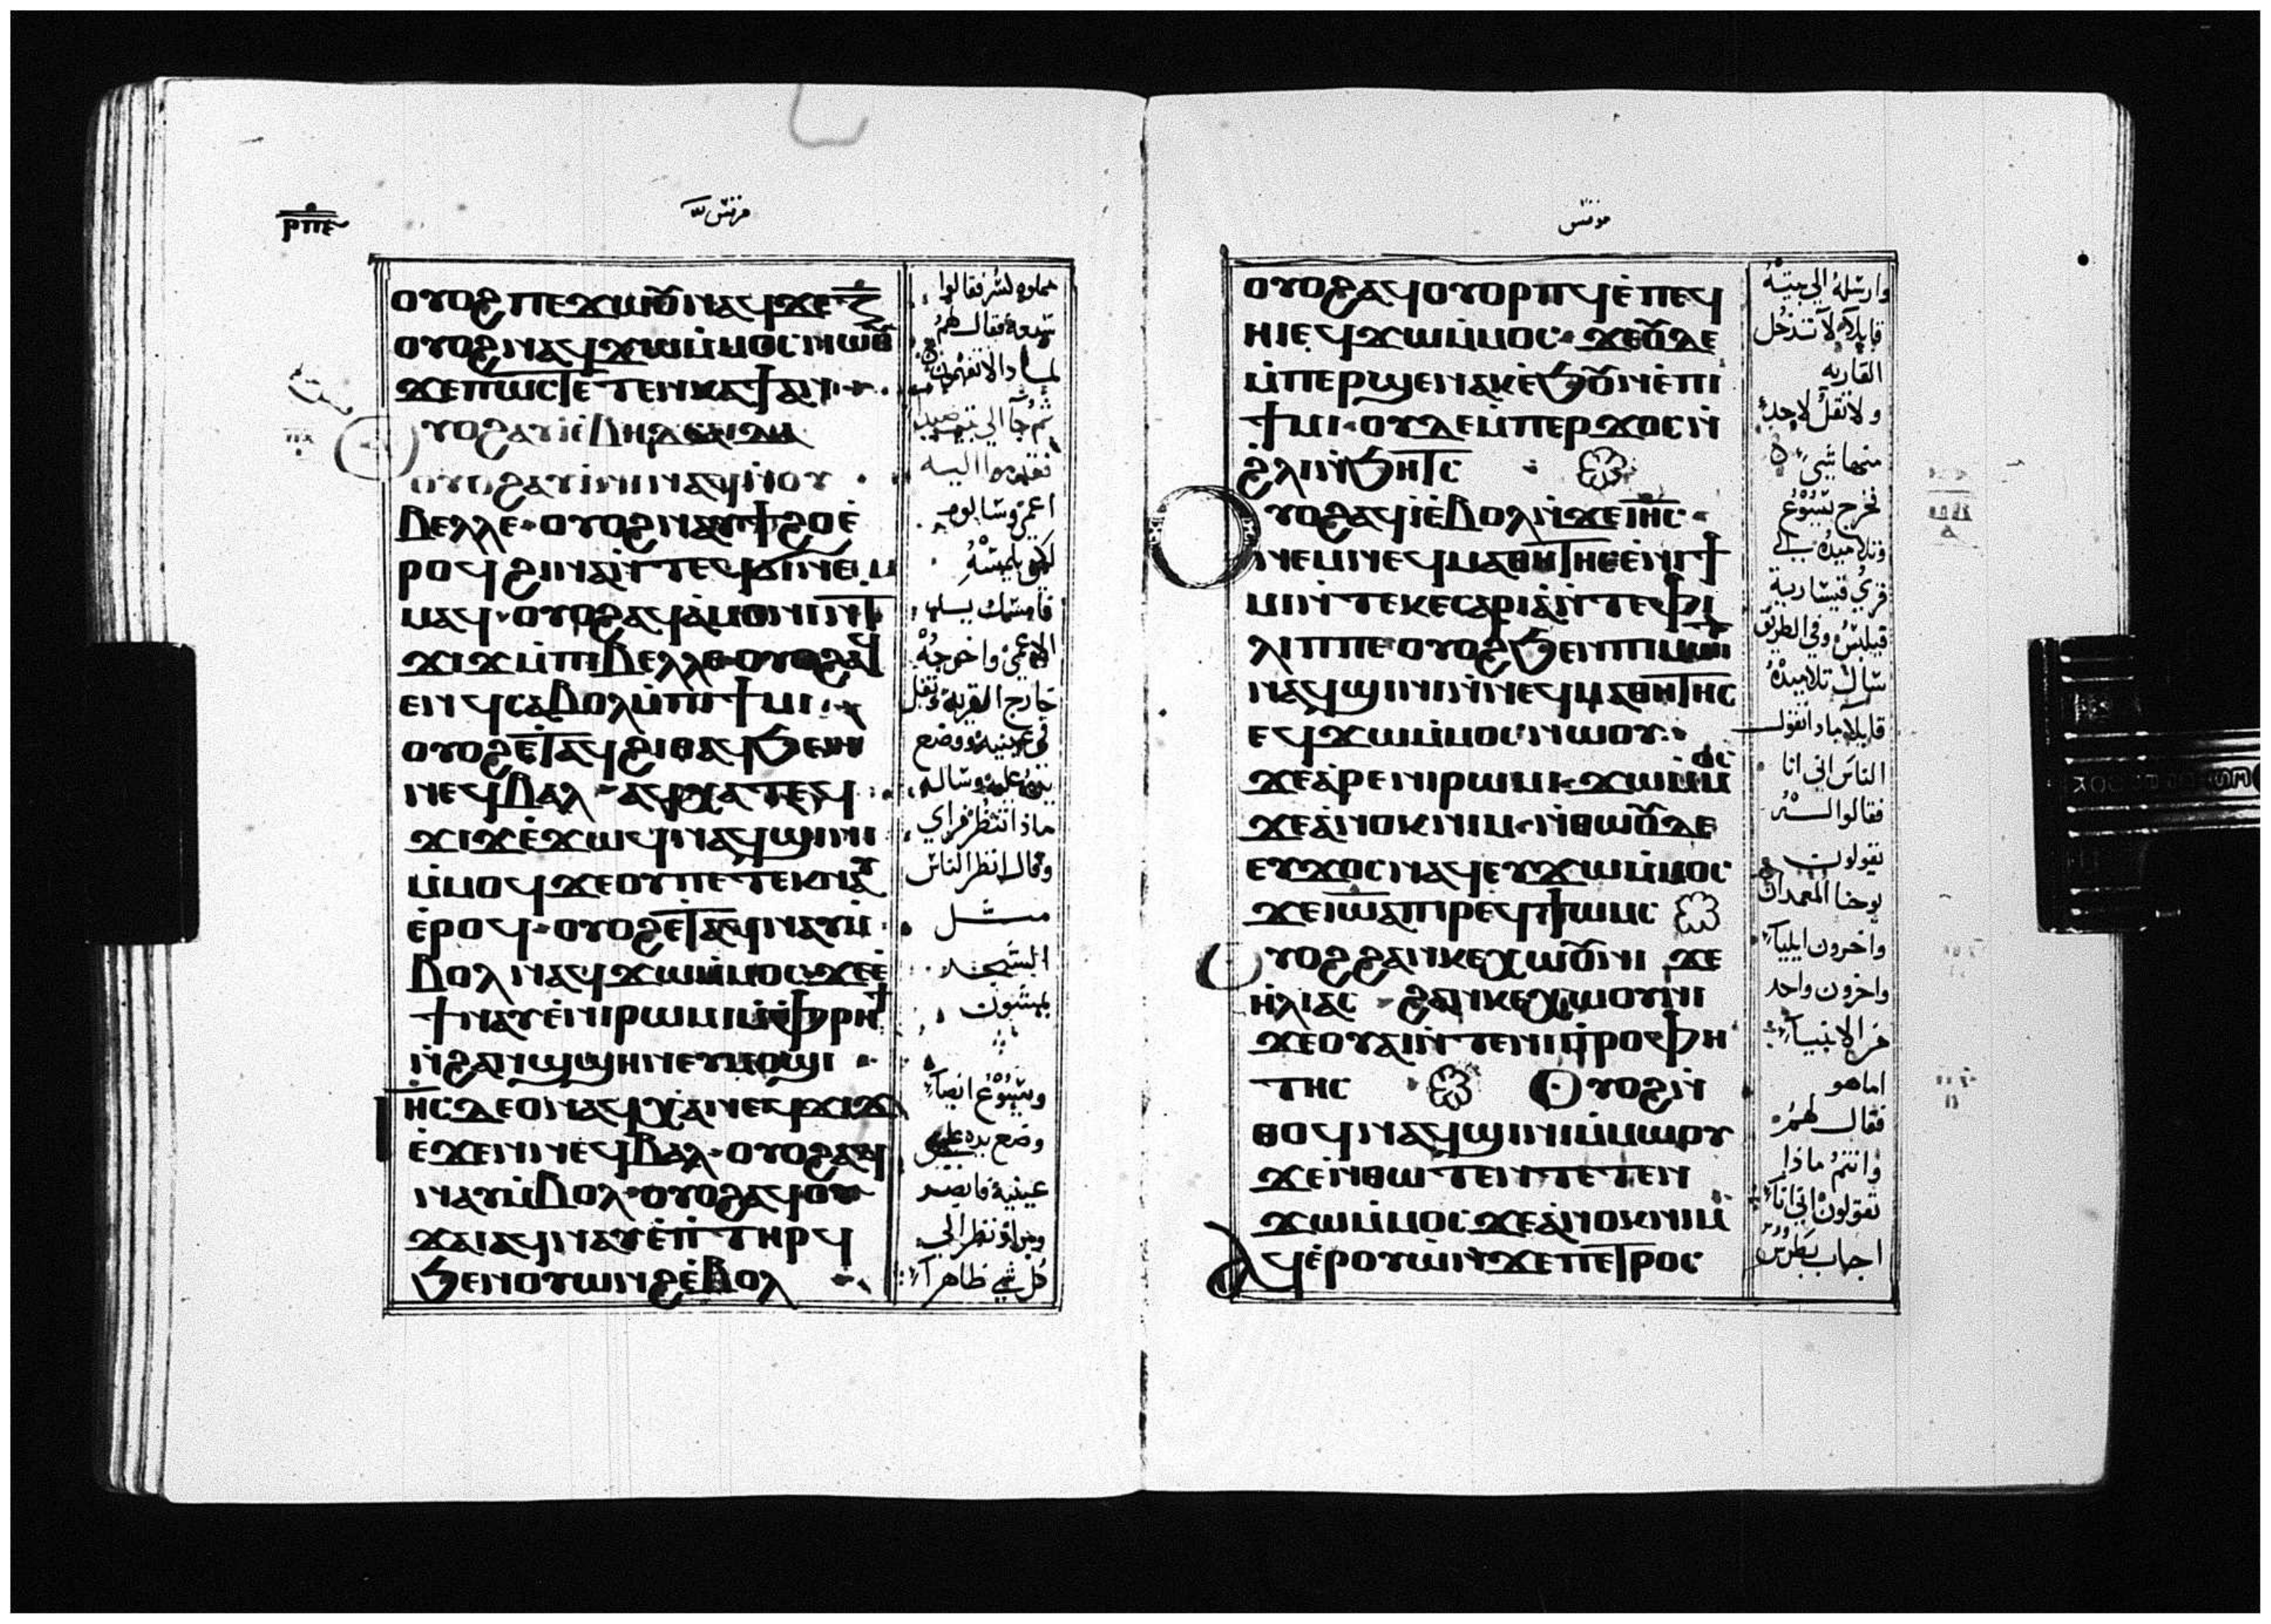 ⲣⲡⲉ
مرقس
ⲟⲩⲟϩ ⲡⲉϫⲱⲟⲩ ⲛⲁϥ ϫⲉ ⲍ̅
ⲟⲩⲟϩ ⲛⲁϥϫⲱ ⲙ̀ⲙⲟⲥ ⲛⲱⲟⲩ
ϫⲉ ⲡⲱⲥ ⲧⲉⲧⲉⲛⲕⲁϯ ⲁⲛ
ⲩⲟϩ ⲁⲩⲓ̀ ⲉ̀ⲃⲏⲇⲥⲁⲓⲇⲁ
ⲟⲩⲟϩ ⲁⲩⲓ̀ⲛⲓ ⲛⲁϥ ⲛ̀ⲟⲩ
ⲃⲉⲗⲗⲉ ⲟⲩⲟϩ ⲛⲁⲩϯϩⲟ ⲉ̀
ⲣⲟϥ ϩⲓⲛⲁ ⲛ̀ⲧⲉϥϭⲓ ⲛⲉⲙ
ⲙⲁϥ ⲟⲩⲟϩ ⲁϥⲁ̀ⲙⲟⲛⲓ ⲛ̀ⲧ
ϫⲓϫ ⲙ̀ⲡⲓⲃⲉⲗⲗⲉ ⲟⲩⲟϩ ⲁϥ
ⲉⲛϥ ⲥⲁⲃⲟⲗ ⲙ̀ⲡⲓϯⲙⲓ
ⲟⲩⲟϩ ⲉ̀ⲧⲁϥϩⲓⲑⲁϥ ϧⲉⲛ
ⲛⲉϥⲃⲁⲗ ⲁϥⲭⲁ ⲧⲉϥ
ϫⲓϫ ⲉ̀ϫⲱϥ ⲛⲁϥϣⲓⲛⲓ
ⲙ̀ⲙⲟϥ ϫⲉ ⲟⲩ ⲡⲉⲧⲉⲕⲛⲁⲩ
ⲉ̀ⲣⲟϥ ⲟⲩⲟϩ ⲉ̀ⲧⲁϥⲛⲁⲩ ⲙ̀
ⲃⲟⲗ ⲛⲁϥϫⲱ ⲙ̀ⲙⲟⲥ ϫⲉ ⲉ̀
ϯⲛⲁⲩ ⲉ̀ⲛⲓⲣⲱⲙⲓ ⲙ̀ⲫⲣⲏϯ
ⲛ̀ϩⲁⲛϣϣⲏⲛ ⲉⲩⲙⲟϣⲓ
ⲓⲏⲥ ⲇⲉ ⲟⲛ ⲁϥⲭⲁ ⲛⲉϥϫⲓϫ
ⲉ̀ϫⲉⲛ ⲛⲉϥⲃⲁⲗ ⲟⲩⲟϩ ⲁϥ
ⲛⲁⲩ ⲙ̀ⲃⲟⲗ ⲟⲩⲟϩ ⲁϥⲟⲩ
ϫⲁⲓ ⲁϥⲛⲁⲩ ⲉ̀ⲡⲧⲏⲣϥ
ϧⲉⲛ ⲟⲩⲱⲛϩ ⲉ̀ⲃⲟⲗ
فقالوا
سبعة فقال لهم
لماذا لا تفهمون
ثم جا الى بيت صيدا
فقدموا اليه
اعمى وسالوه
لكي يلمسه
فامسك بيد
الاعمى واخرجه
خارج القرية وتفل
في عينيه ووضع
يده عليه وساله
ماذا تنظر فراي
وقال انظر الناس
مثل
الشجر
يمشون
ويسوع ايضا
وضع يده على
عينيه فابصر
وبرا ونظر الى
كل شي ظاهرا
مرقس
ⲟⲩⲟϩ ⲁϥⲟⲩⲟⲣⲡϥ ⲉ̀ⲡⲉϥ
ⲏⲓ ⲉϥϫⲱ ⲙ̀ⲙⲟⲥ ϫⲉ ⲟⲩⲇⲉ
ⲙ̀ⲡⲉⲣϣⲉⲛⲁⲕ ⲉ̀ϧⲟⲩⲛ ⲉ̀ⲡⲓ
ϯⲙⲓ ⲟⲩⲇⲉ ⲙ̀ⲡⲉⲣϫⲟⲥ ⲛ̀
ϩ̀ⲗⲓ ⲛ̀ϧⲏⲧⲥ
ⲩⲟϩ ⲁϥⲓ̀ ⲉ̀ⲃⲟⲗ ⲛ̀ϫⲉ ⲓⲏⲥ
ⲛⲉⲙ ⲛⲉϥⲙⲁⲑⲏⲧⲏⲥ ⲉ̀ⲛⲓϯ
ⲙⲓ ⲛ̀ⲧⲉ ⲕⲉⲥⲁⲣⲓⲁ̀ ⲛ̀ⲧⲉ ⲫⲓ
ⲗⲓⲡⲡⲉ ⲟⲩⲟϩ ϧⲉⲛ ⲡⲓⲙⲱⲓⲧ
ⲛⲁϥϣⲓⲛⲓ ⲛ̀ⲛⲉϥⲙⲁⲑⲏⲧⲏⲥ
ⲉϥϫⲱ ⲙ̀ⲙⲟⲥ ⲛⲱⲟⲩ
ϫⲉ ⲁ̀ⲣⲉ ⲛⲓⲣⲱⲙⲓ ϫⲱ ⲙ̀ⲙⲟⲥ
ϫⲉ ⲁ̀ⲛⲟⲕ ⲛⲓⲙ ⲛ̀ⲑⲱⲟⲩ ⲇⲉ
ⲉⲩϫⲟⲥ ⲛⲁϥ ⲉⲩϫⲱ ⲙ̀ⲙⲟⲥ
ϫⲉ ⲓⲱⲁ ⲡⲓⲣⲉϥϯⲱⲙⲥ
ⲟⲩⲟϩ ϩⲁⲛⲕⲉⲭⲱⲟⲩⲛⲓ ϫⲉ
ⲏ̀ⲗⲓⲁⲥ ϩⲁⲛⲕⲉⲭⲱⲟⲩⲛⲓ
ϫⲉ ⲟⲩⲁⲓ ⲛ̀ⲧⲉ ⲛⲓⲡⲣⲟⲫⲏ
ⲧⲏⲥ ⲟⲩⲟϩ ⲛ̀
ⲑⲟϥ ⲛⲁϥϣⲓⲛⲓ ⲙ̀ⲙⲱⲟⲩ
ϫⲉ ⲛ̀ⲑⲱⲧⲉⲛ ⲧⲉⲧⲉⲛ
ϫⲱ ⲙ̀ⲙⲟⲥ ϫⲉ ⲁ̀ⲛⲟⲕ ⲛⲓⲙ
ⲁϥⲉ̀ⲣⲟⲩⲱ̀ ⲛ̀ϫⲉ ⲡⲉⲧⲣⲟⲥ
وارسله الى بيته
قايلا لا تدخل
القريه
ولا تقل لاحد
منها شي
فخرج يسوع
وتلاميذه الى
قرى قيسارية
فيلبس وفي الطريق
سال تلاميذه
قايلا ماذا تقول
الناس اني انا
فقالوا
يقولون
يوحنا المعمدان
واخرون ايليا
واخرون واحد
من الانبيا
اما هو
فقال لهم
وانتم ماذا
تقولون اني انا
اجاب بطرس